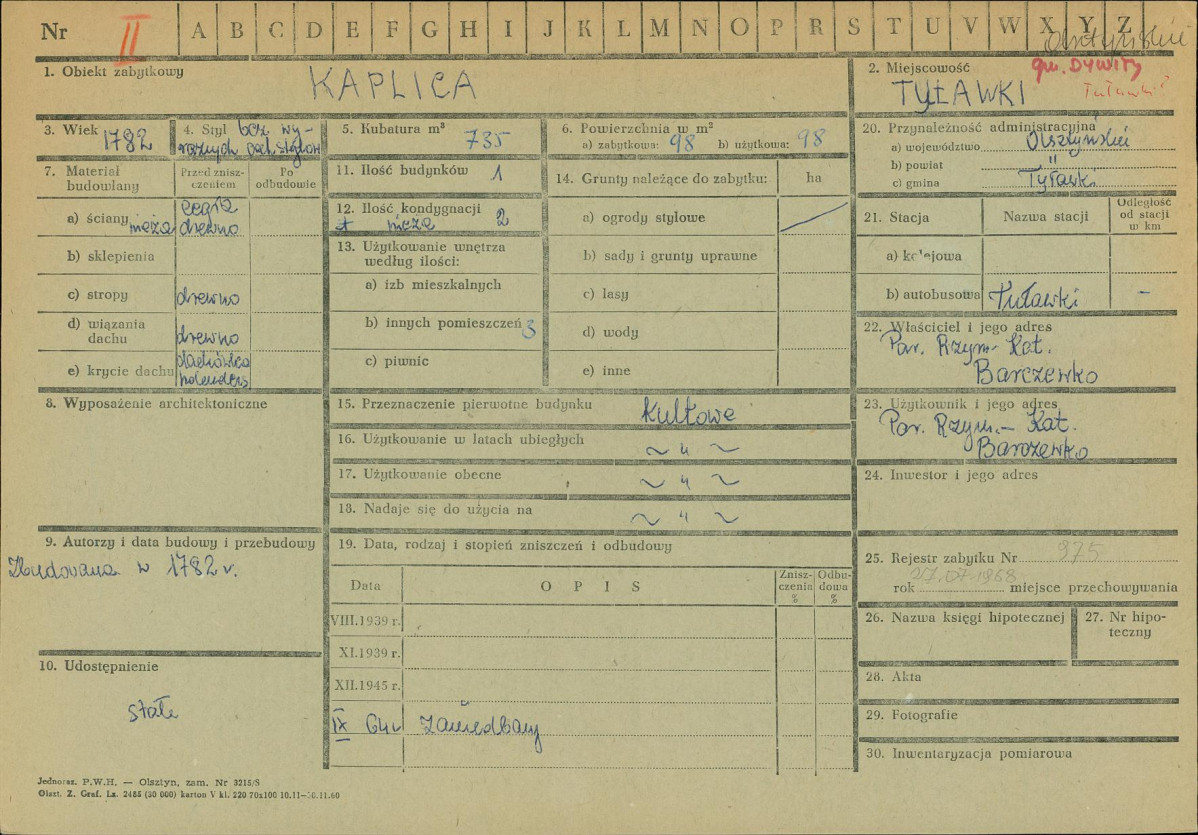 Nr II A B C D E F G H I J K L M N O P R S T U V W X Y Z
Olsztyńskie
1. Obiekt zabytkowy KAPLICA
2. Miejscowość gm. DYWITY
TYŁAWKI Tuławki?
3. Wiek 1782
4. Styl bez wy-
raźnych cech stylow
5. Kubatura m³ 735
6. Powierzchnia w m²
a) zabytkowa: 98 b) użytkowa: 98
20. Przynależność administracyjna
a) województwo Olsztyńskie
b) powiat "
c) gmina Tyławki
7. Materiał
budowlany
Przed znisz-
czeniem
Po
odbudowie
a) ściany cegła
wieża drewno
b) sklepienia
c) stropy drewno
d) wiązania
dachu drewno
e) krycie dachu dachówka
holenders
11. Ilość budynków 1
12. Ilość kondygnacji
+ wieża 2
13. Użytkowanie wnętrza
według ilości:
a) izb mieszkalnych
b) innych pomieszczeń 3
c) piwnic
14. Grunty należące do zabytku: ha
a) ogrody stylowe
b) sady i grunty uprawne
c) lasy
d) wody
e) inne
21. Stacja Nazwa stacji
Odległość
od stacji
w km
a) kolejowa
b) autobusowa Tuławki –
22. Właściciel i jego adres
Par. Rzym.-Kat.
Barczewko
8. Wyposażenie architektoniczne
15. Przeznaczenie pierwotne budynku kultowe
16. Użytkowanie w latach ubiegłych ~ " ~
17. Użytkowanie obecne ~ " ~
18. Nadaje się do użycia na ~ " ~
23. Użytkownik i jego adres
Par. Rzym.-Kat.
Barczewko
24. Inwestor i jego adres
9. Autorzy i data budowy i przebudowy
Zbudowana w 1782 r.
10. Udostępnienie
stałe
19. Data, rodzaj i stopień zniszczeń i odbudowy
Data OPIS
Znisz-
czenia
%
Odbu-
dowa
%
VIII.1939 r.
XI.1939 r.
XII.1945 r.
IX 64 r. zaniedbany
25. Rejestr zabytku Nr 975
27.07.1968
rok miejsce przechowywania
26. Nazwa księgi hipotecznej
27. Nr hipo-
teczny
28. Akta
29. Fotografie
30. Inwentaryzacja pomiarowa
Jednoraz. P.W.H. — Olsztyn, zam. Nr 3215/S
Olszt. Z. Graf. Lz. 2485 (30 000) karton V kl. 220 70x100